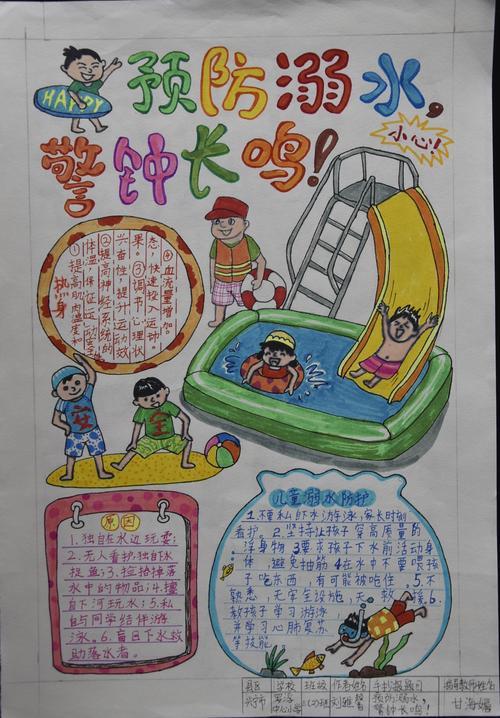 HAPPY
预防溺水，
小心！
警钟长鸣！
热身
①提高肌肉温度和
体温，保证运动安
②提高神经系统的
兴奋性，提升运动效
果。③调节心理状
态，快速投入运动，
④血流量增加，
安
全
原因
1.独自在水边玩耍；
2.无人看护独自下水
捉鱼；3.捡拾掉落
水中的物品；4.擅
自下河玩水；5.私
自与同学结伴游
泳。6.盲目下水救
助落水者。
儿童溺水防护
1.不要私自下水游泳，家长时刻
看护。2.坚持让孩子穿高质量的
浮身物 3要求孩子下水前活动身
体 避免抽筋 4在水中不要喂孩
子吃东西，有可能被呛住 5.不
熟悉，无安全设施，
教孩子学习游泳
并学习心肺复苏
等技能
县区 学校 班级 作者姓名 手抄报题目 指导教师姓名
兴宁市 中心小学 预防溺水， 甘海媚
警钟长鸣！